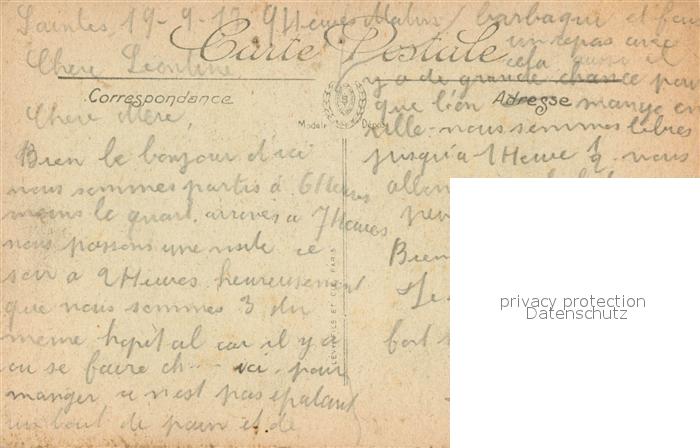 Saintes, 19-9-17 9 Heures Matin
Carte Postale
Chère Léontine
Correspondance
Chere Mere,
Bien le bonjour d'ici
nous sommes partis à 6 Heures
moins le quart, arrivés à 7 Heures
nous passons une visite ce
soir a 2 Heures heureusement
que nous sommes 3 du
meme hopital car il y a
ou se faire ch... ici, pour
manger ce n'est pas épatant
un bout de pain et de
barbaque et
un repas avec
cela aussi il
y a de grande chance pour
que l'on mange en
ville. nous sommes libres
jusqu'à 1 Heure 1/2. nous
allons
Bien
Le
fort
Adresse
Modele Déposé
LEVY FILS ET CIE PARIS
privacy protection
Datenschutz